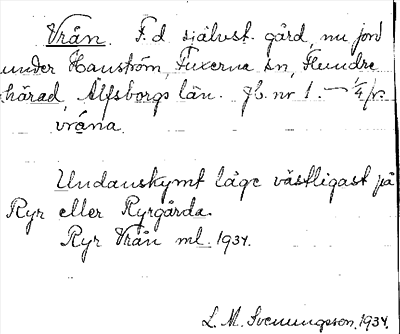 Vrån. F.d självst. gård, nu jord
under Hanström, Fuxerna sn, Flundre
härad, Älfsborgs län. Jb. nr 1. — 1/4
vrá̄na.
Undanskymt läge västligast på
Ryr eller Ryrgårda.
Ryr Vrån ml. 1934.
L. M. Svenungsson. 1934.